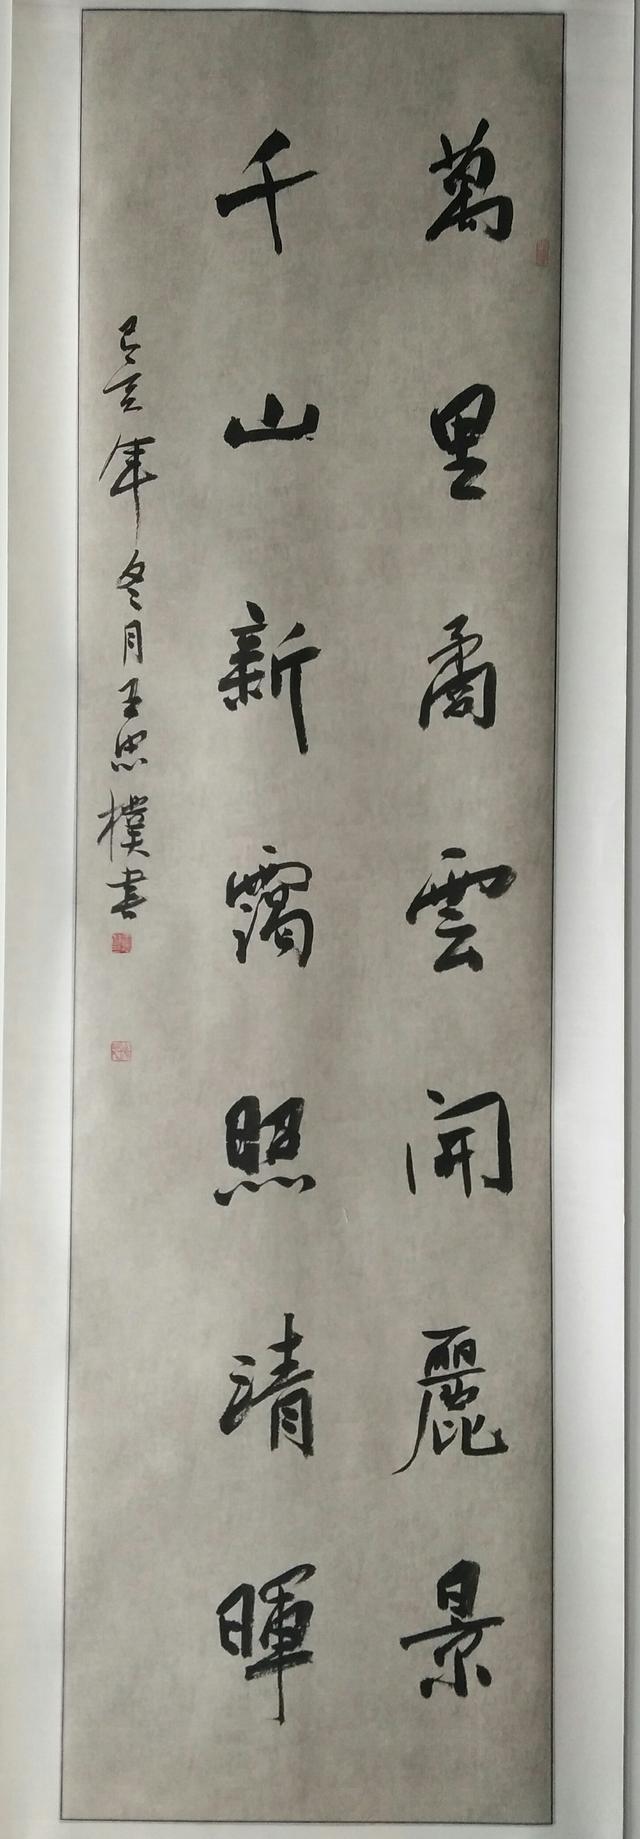 萬里矞雲開麗景
千山新靄照清暉
己亥年冬月王忠樸書